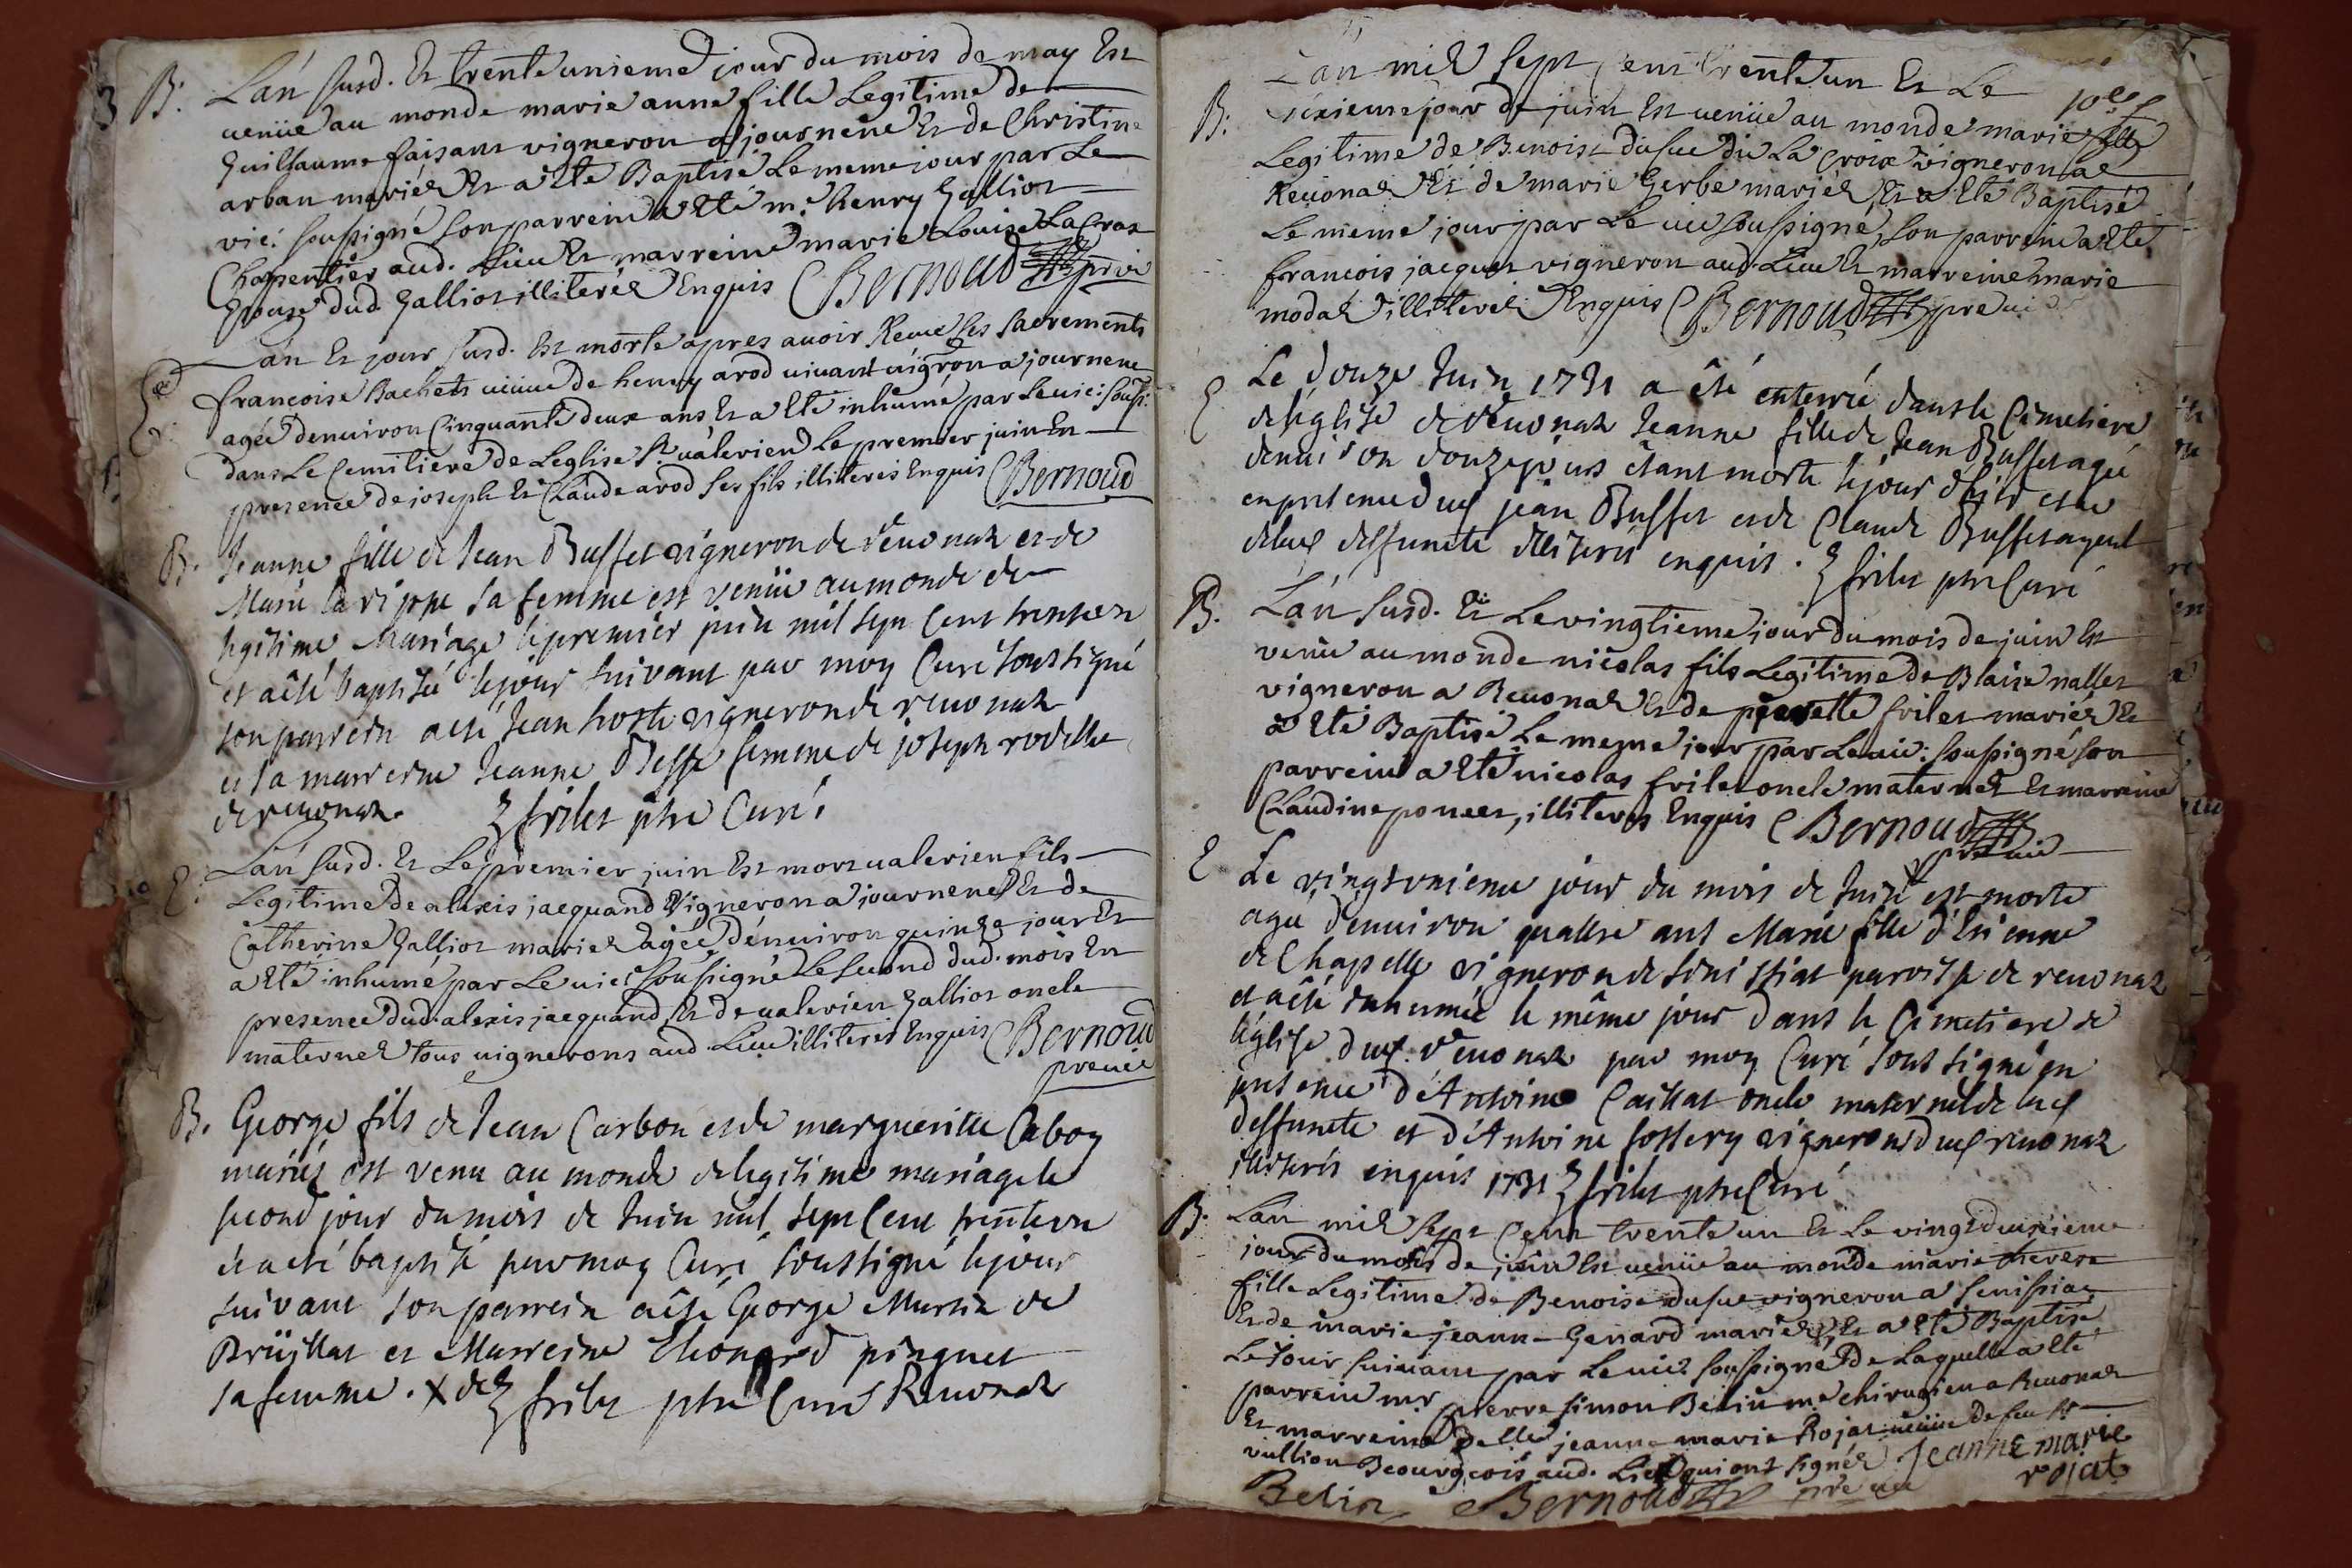 B. L'an susd. Et trente unieme jour du mois de may Est
venüe au monde marie anne fille Legitime de
Guillaume faisant vigneron a journene Et de Christine
arban mariés Et a Eté Baptisé Le meme jour par Le
vic: soussigné son parrein a Eté m.e henry Galliot
Charpentier aud. Lieu Et marreine marie Louise La Croz
Epouse dud Galliot illiterés Enquis Bernoud
L'an Et jour susd. Est morte apres avoir Receu ses sacrements
francoise Bachets veüve de henry arod vivant vigron a journene
agée d'environ Cinquante deux ans Et a Eté inhumé par le vic: souss:
dans Le Cemitiere de Leglise st valerien Le premier juin En
presence de joseph Et Claude arod ses fils illiterés Enquis Bernoud
B. Jeanne fille de Jean Buffet vigneron de revonas et de
Marie la rippe sa femme est venüe au monde de
legitime Mariage le premier juin mil sept cent trente un
et a été baptisée le jour suivant par moy Curé soussigné
son parrein a été Jean hoste vigneron de revonas
et sa marreine Jeanne Besse femme de joseph rodelle
de revonas. frilet ptre Curé
E: L'an susd. Et Le premier juin Est mort valerien fils
Legitime de alexis jacquand Vigneron a journene Et de
Catherine Galliot mariés agée d'environ quinze jour Et
a Eté inhumé par Le vic: soussigné Le second dud. mois En
presence dud. alexis jacquand Et de valerien Galliot oncle
maternel tous vignerons aud. Lieu illiterés Enquis Bernoud
pre vic
B. George fils de Jean Carbon et de marguerite Caboy
mariés est venu au monde de legitime mariage le
second jour du mois de Juin mil sept Cent trente un
et a été baptisé par moy Curé soussigné le jour
suivant son parrein a été George Murtin de
Drüillat et Marreine Eleonord pinguet
sa femme. frilet ptre Curé Revonas
L'an mil sept Cent trente un Et Le
B: sixieme jour de juin Est venüe au monde marie fille
Legitime de Benoist dusuc du La Croix vigneron a
Revonas Et de marie Gerbe mariés Et a Eté Baptisé
Le meme jour par Le vic soussigné, son parrein a Eté
francois jacques vigneron aud. Lieu Et marreine marie
modas illiterés Enquis Bernoud pre vic
E Le douze Juin 1731 a été enterrée dans le Cimetiere
de l'église de revonas Jeanne fille de Jean Buffet agée
d'environ douze jours étant morte le jour d'hier et ce
en presence dud jean Buffet et de Claude Buffet ayeul
de lad deffuncte illiterés enquis. frilet ptre Curé
B. L'an susd. Et Le vingtieme jour du mois de juin Est
venu au monde nicolas fils Legitime de Blaise nallet
vigneron a Revonas Et de pierrette frilet mariés Et
a Eté Baptisé Le meme jour par Le vic: soussigné son
parrein a Eté nicolas frilet oncle maternel Et marreine
Claudine poncet, illiterés Enquis Bernoud
pre vic
E Le vingt unieme jour du mois de Juin est morte
agée d'environ quattre ans Marie fille d'Etienne
de Chapelle vigneron de senissiat paroisse de revonas
et a été inhumée le même jour dans le Cimetiere de
l'église dud. revonas par moy Curé soussigné en
presence d'Antoine Caillat oncle maternel de lad
deffuncte et d'Antoine sottery vigneron dud revonas
illiterés enquis 1731 frilet ptre Curé
B. L'an mil sept Cent trente un Et Le vingt deuxieme
jour du mois de juin Est venüe au monde marie therese
fille Legitime de Benoist dusuc vigneron a senissiac
Et de marie jeanne Genard mariés, Et a Eté Baptisé
Le Jour suivant par Le vic soussigné de Laquelle a Eté
parrein mr pierre simon Belin me chirugien a Revonas
Et marreine delle jeanne marie Rojat veüve de feu sr
vullion Beourgeois aud. Lieu qui ont signés Jeanne marie
rojat
Belin Bernoud pre vic